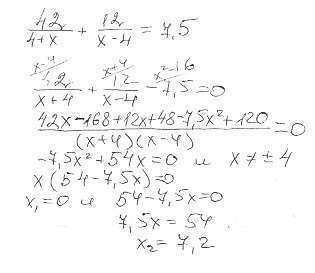 42/(4+x) + 12/(x-4) = 7,5
x-4 x+4 x²-16
42/(x+4) + 12/(x-4) - 7,5 = 0
(42x-168+12x+48-7,5x²+120)/((x+4)(x-4)) = 0
-7,5x²+54x=0 и x≠±4
x(54-7,5x)=0
x₁=0 и 54-7,5x=0
7,5x=54
x₂=7,2